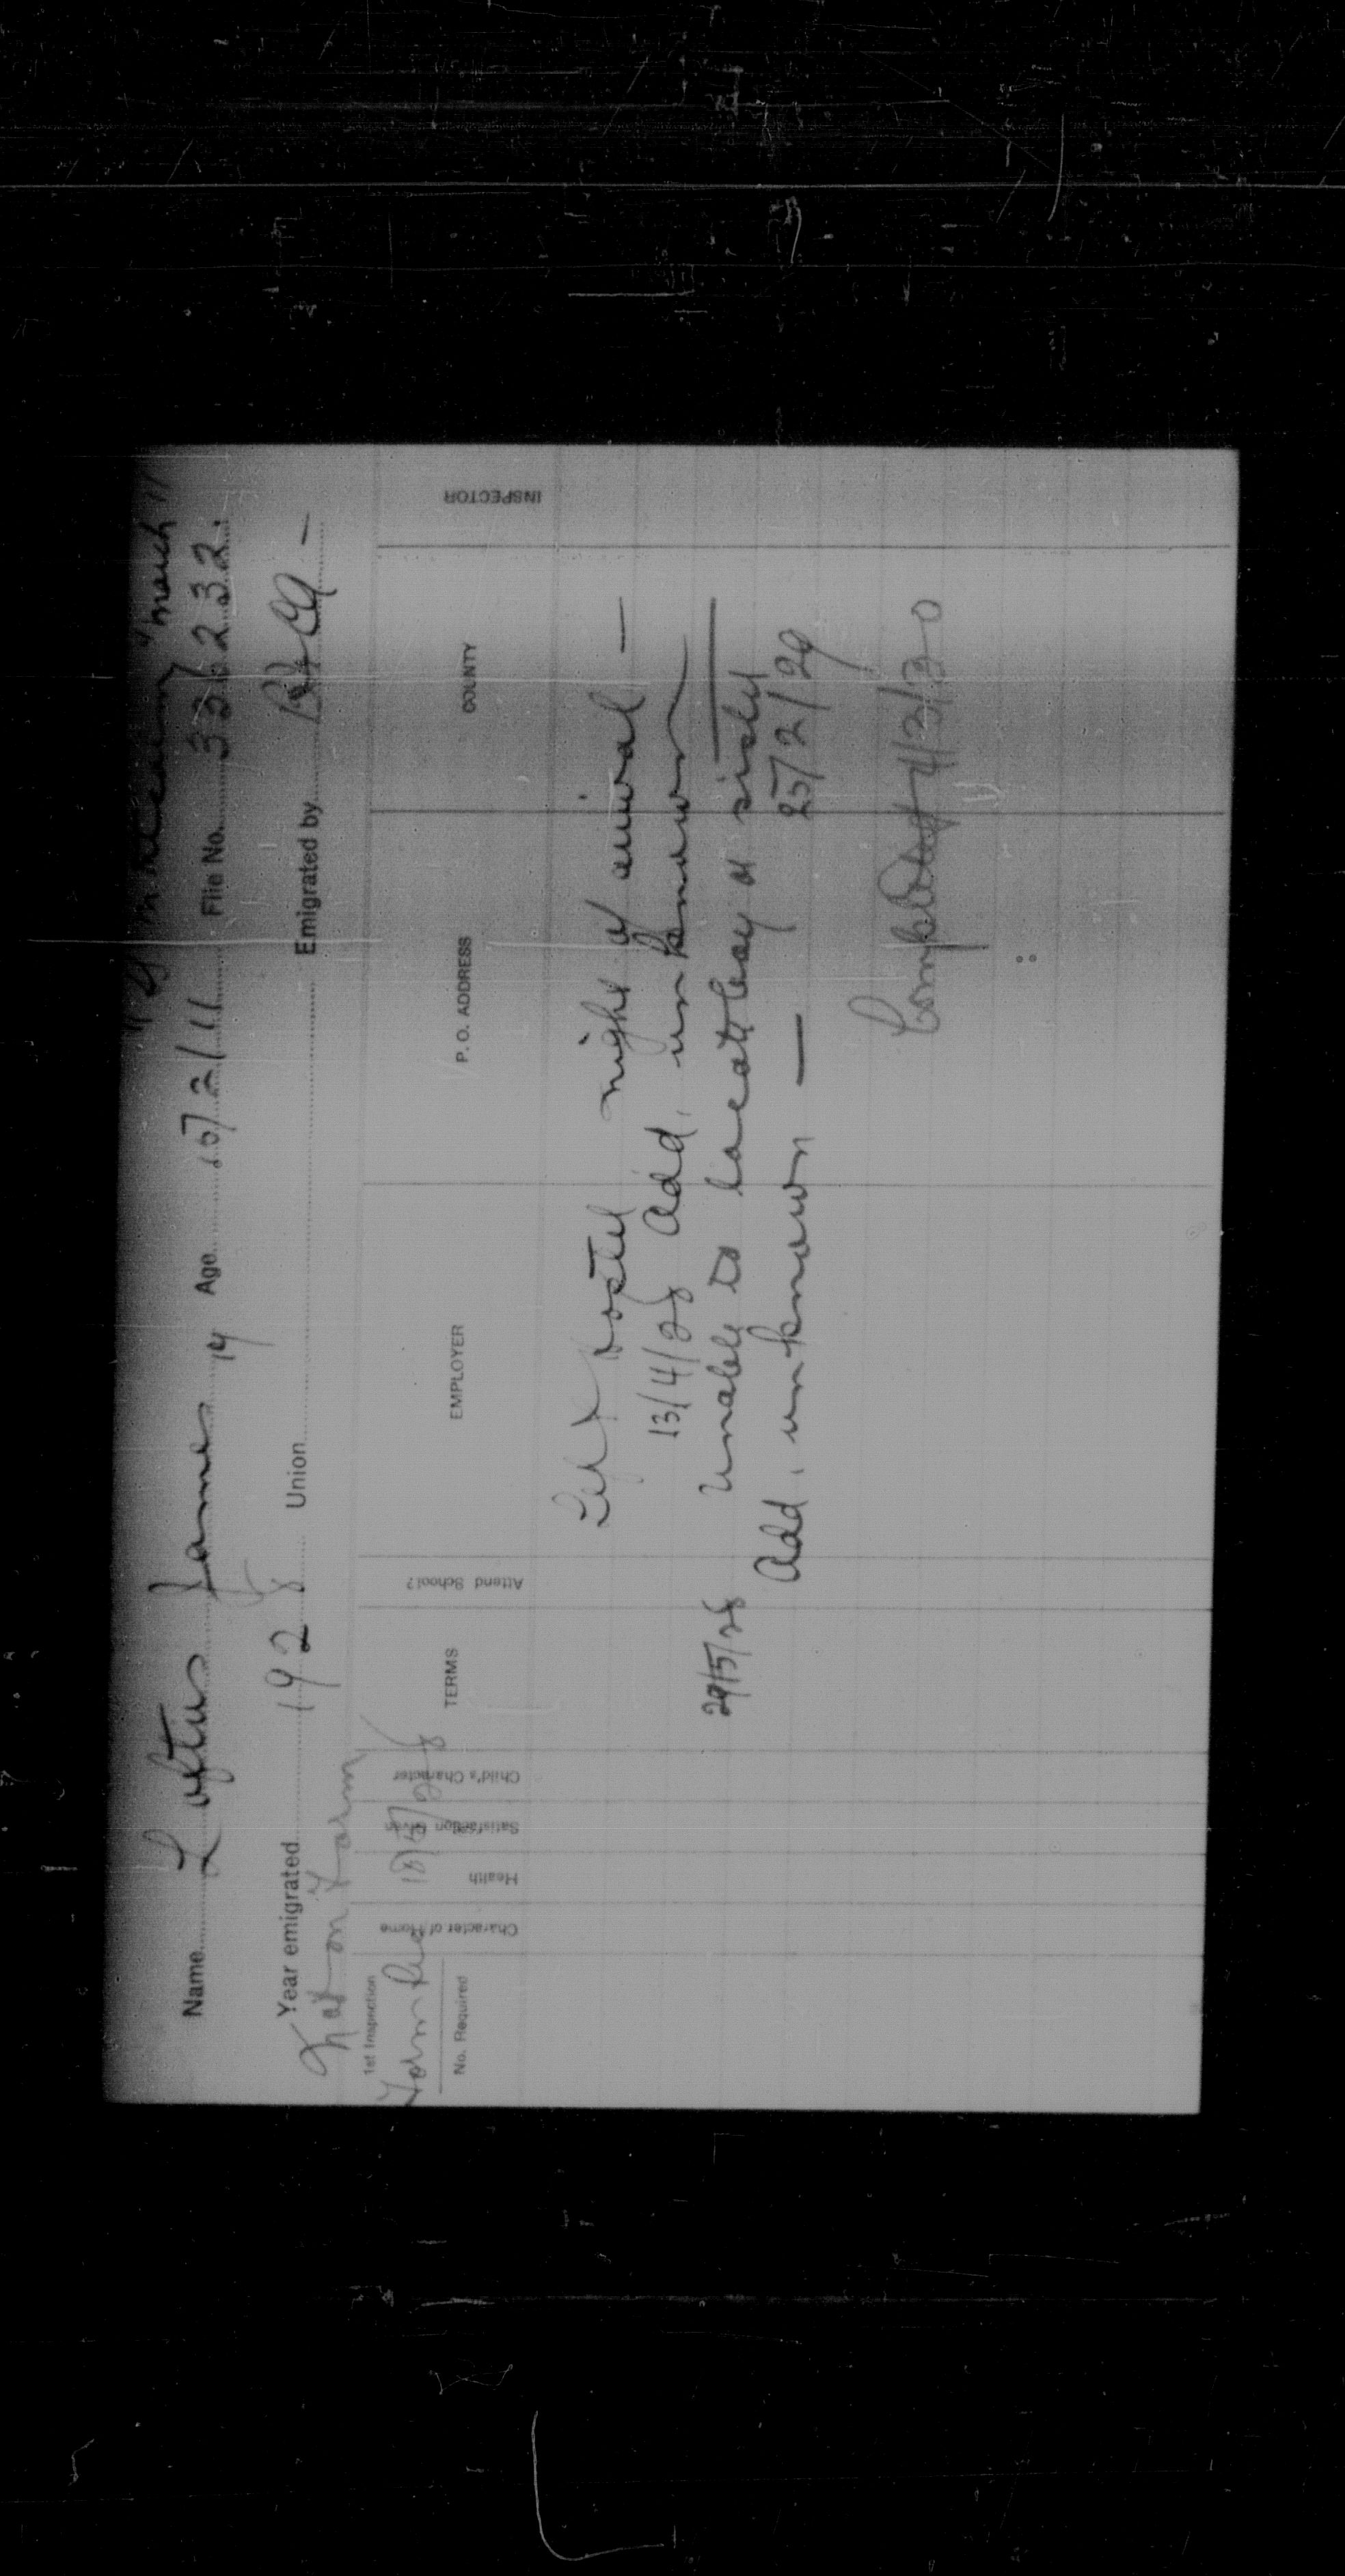 March 11
Name Loftus James 14 Age 15/2/11 File No. 331232
Year emigrated 1928 Union Emigrated by
Not on Farm
1st Inspection
18/5/28
No. Required Character of Home Health Satisfaction Given Child's Character TERMS Attend School? EMPLOYER P. O. ADDRESS COUNTY INSPECTOR
Left Hostel night of arrival —
13/4/28 Add. unknown
29/5/28 Unable to locate boy or sister
Add. unknown — 25/2/29
Completed 4/2/30